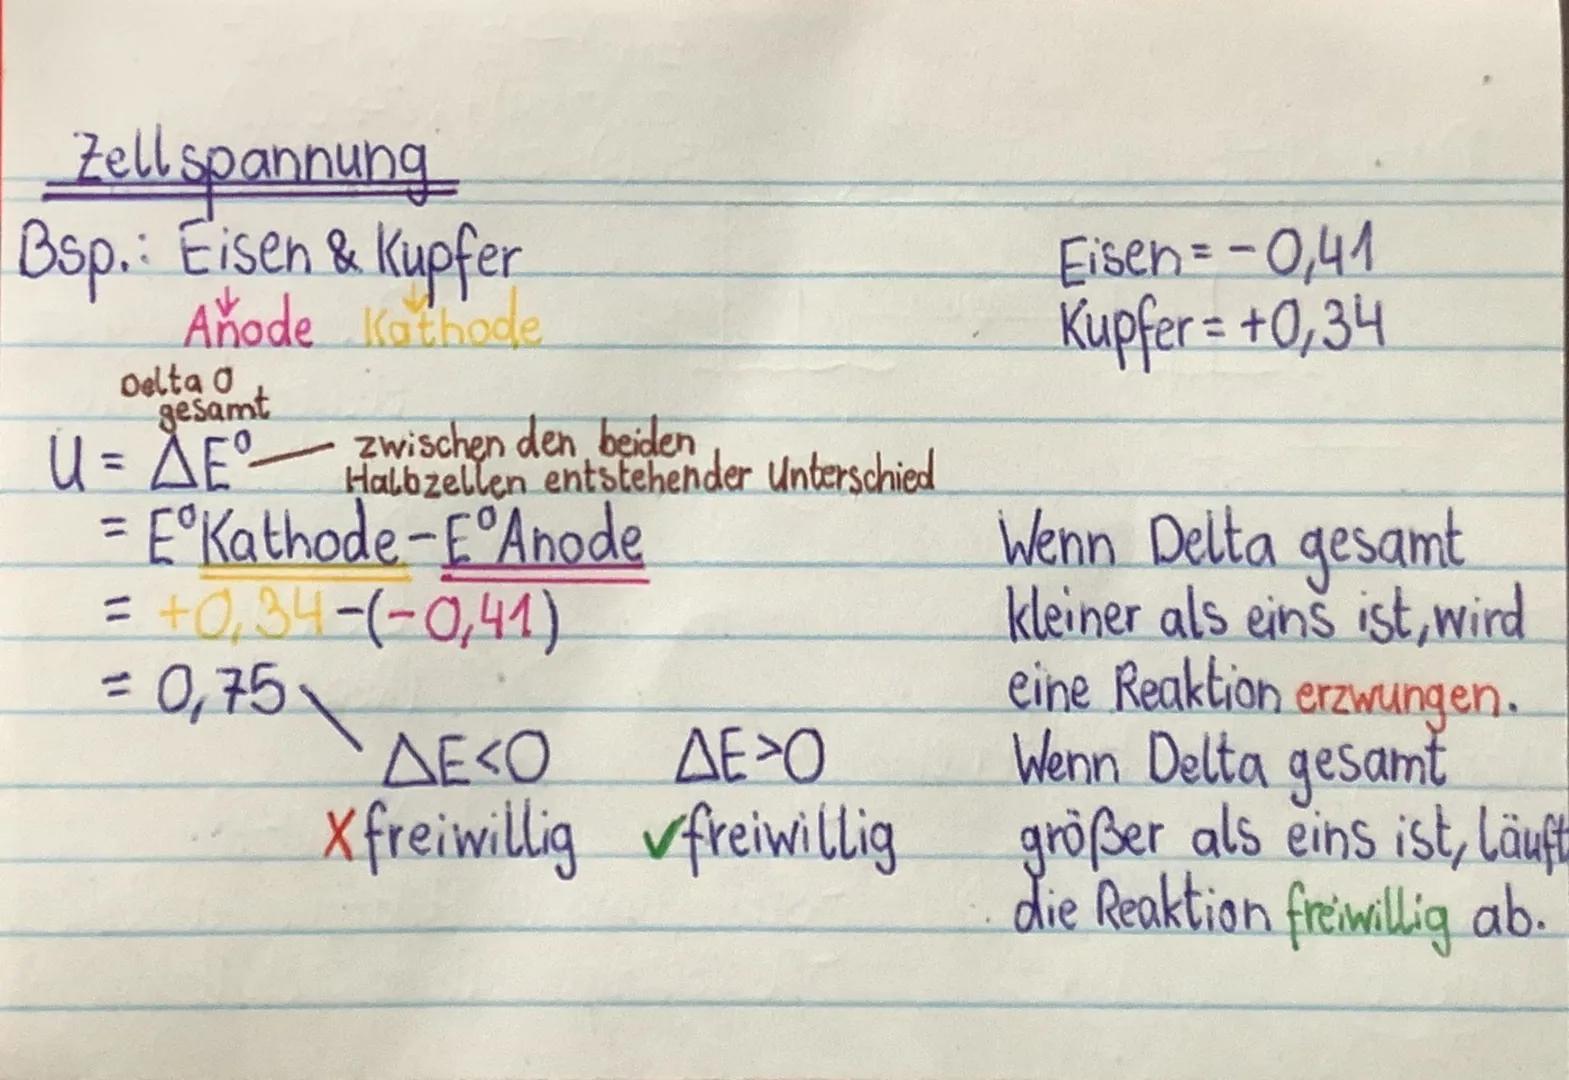 Zellspannung
Bsp.: Eisen & Kupfer
Anode Kathode
Eisen = -0,41
Kupfer = +0,34
Delta 0
gesamt
U = ΔE⁰ — zwischen den beiden
Halbzellen entstehender Unterschied
= E⁰Kathode - E⁰Anode
= +0,34 - (-0,41)
= 0,75
ΔE<0 ΔE>0
X freiwillig ✓ freiwillig
Wenn Delta gesamt
kleiner als eins ist, wird
eine Reaktion erzwungen.
Wenn Delta gesamt
größer als eins ist, läuft
die Reaktion freiwillig ab.